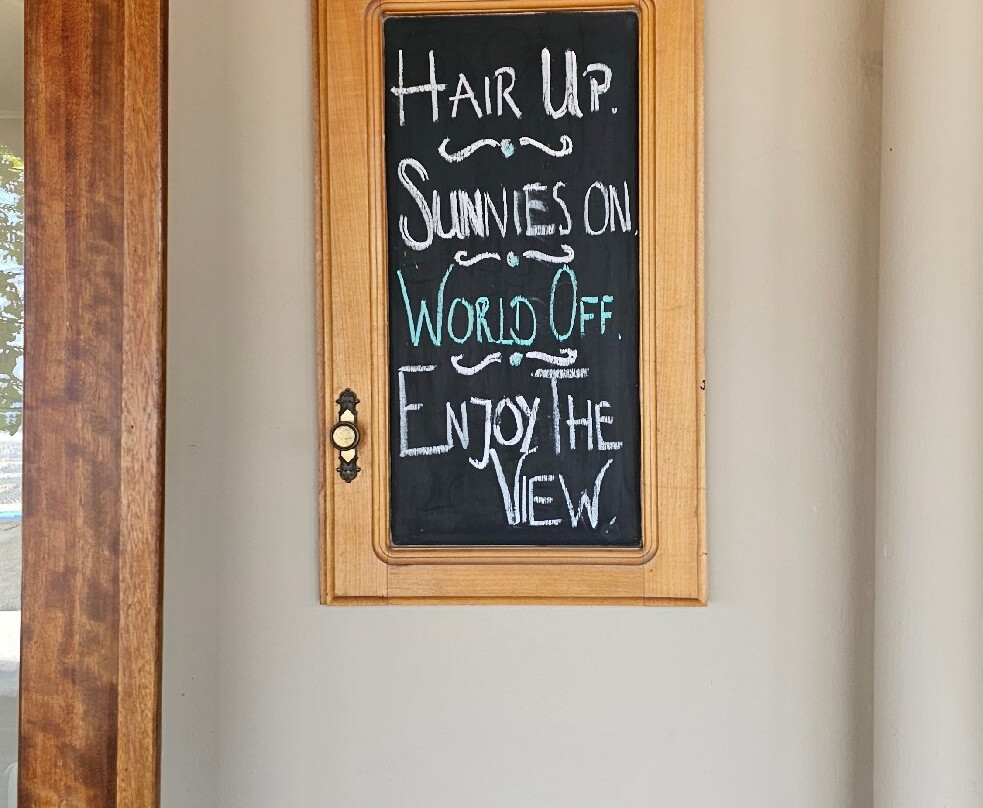 HAIR UP.
SUNNIES ON.
WORLD OFF.
ENJOY THE
VIEW.